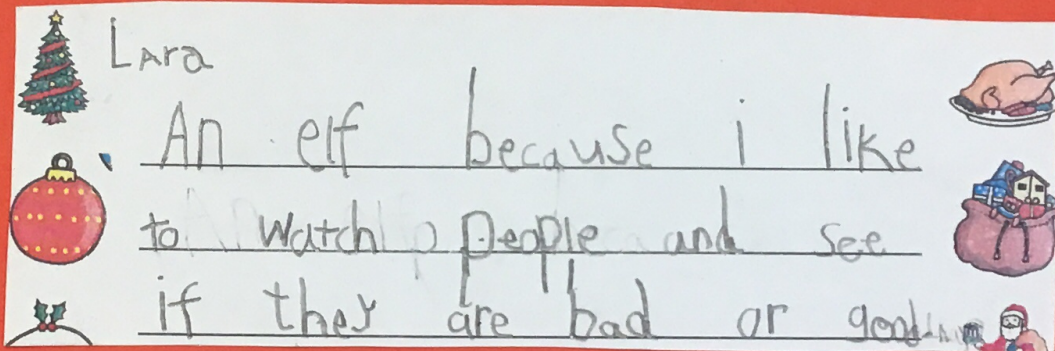 Lara
An elf because i like
to watch people and see
if they are bad or good